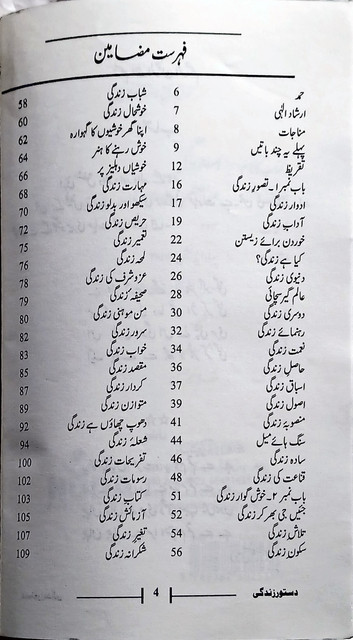 فہرست مضامین
حمد 6
ارشاد الٰہی 7
مناجات 8
پہلے یہ چند باتیں 9
تقریظ 12
باب نمبر ۱۔تصور زندگی 16
ادوار زندگی 17
آداب زندگی 19
خوردن برائے زیستن 22
کیا ہے زندگی؟ 24
دنیوی زندگی 26
عالم گیر سچائی 28
دوسری زندگی 30
رہنمائے زندگی 32
نعمت زندگی 34
حاصل زندگی 36
اسباق زندگی 37
اصول زندگی 39
منصوبۂ زندگی 41
سنگ ہائے میل 44
سادہ زندگی 46
قناعت کی زندگی 48
باب نمبر ۲۔خوش گوار زندگی 51
جئیں جی بھر کر زندگی 52
تلاش زندگی 54
سکون زندگی 56
شباب زندگی 58
خوشحال زندگی 60
اپنا گھر خوشیوں کا گہوارہ 62
خوش رہنے کا ہنر 64
خوشیاں دہلیز پر 66
مہارت زندگی 68
سیکھو اور بدلو زندگی 70
حریص زندگی 72
تعمیر زندگی 75
لمحہ زندگی 76
عزوشرف کی زندگی 78
صحیفۂ زندگی 79
من موہنی زندگی 80
سرور زندگی 82
خواب زندگی 83
مقصد زندگی 85
کردار زندگی 87
متوازن زندگی 89
دھوپ چھاؤں ہے زندگی 92
شعلۂ زندگی 94
تفریحات زندگی 100
رسومات زندگی 102
کتاب زندگی 103
آزمائش زندگی 105
تغیر زندگی 107
شکرانہ زندگی 109
دستور زندگی 4